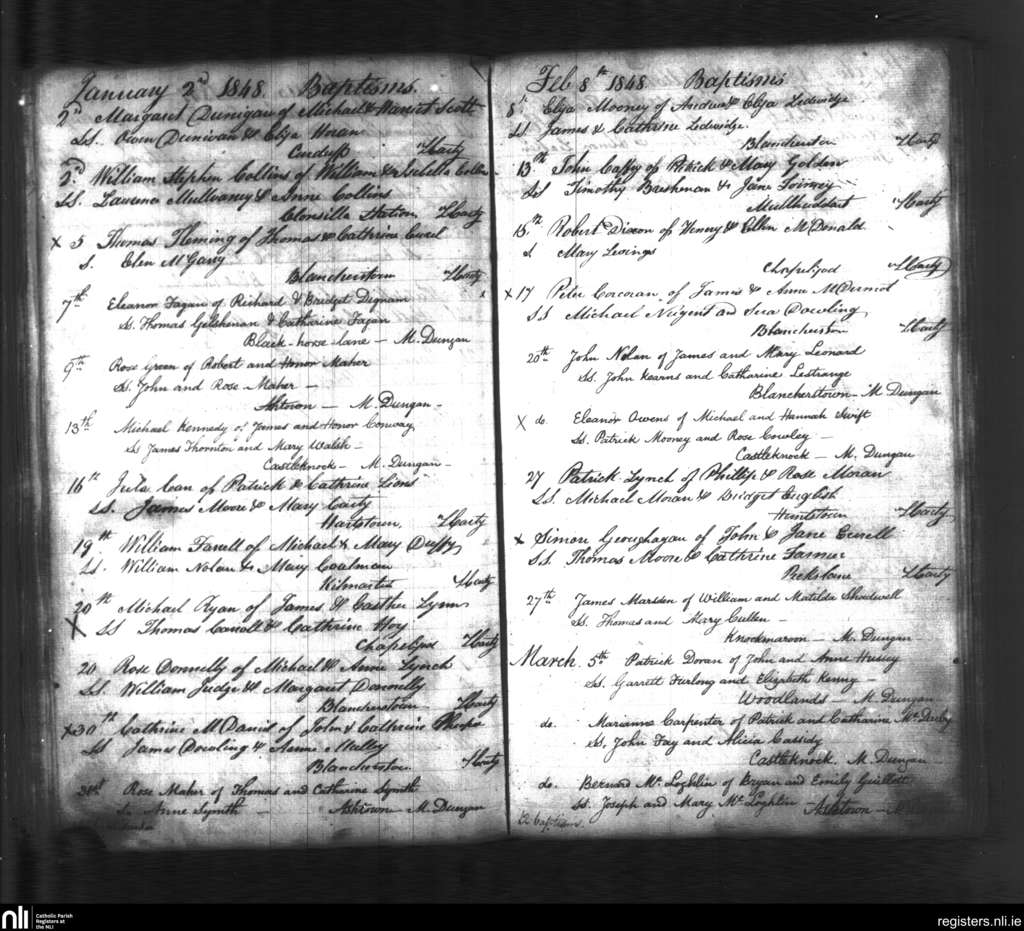 January 2nd 1848 Baptisms
2nd Margaret Dunigan of Michael & Harriet Scott
Ss. Owen Dunivan & Eliza Horan
Harty
2nd William Stephen Collins of William & Isabella Collins
Ss. Laurence Mullvaney & Anne Collins
Clonsilla Station Harty
x 5 Thomas Fleming of Thomas & Cathrine
S. Elen McGarry
Blancherstown Harty
7th Eleanor Fagan of Richard & Bridget Dignam
Ss. Thomas Gelshenan & Catharine Fagan
Black-horse-lane – M. Dungan
9th Rose Green of Robert and Honor Maher
Ss. John and Rose Maher –
Ashtown – M. Dungan –
13th Michael Kennedy of James and Honor Conway
Ss James Thornton and Mary Walsh –
Castleknock – M. Dungan –
16th Julia of Patrick & Cathrine Lions
Ss. James Moore & Mary Carty
Hartstown, Harty
19th William Farrell of Michael & Mary Duffy
Ss. William Nolan & Mary Coalman
Kilmartin Harty
20th Michael Ryan of James & Easther Lynn
X SS Thomas Carroll & Cathrine Hoy
Chapelizod Harty
20 Rose Donnelly of Michael & Anne Lynch
Ss. William Judge & Margaret Donnelly
Blancherstown Harty
x 30th Cathrine McDaniel of John & Cathrine
Ss James Dowling & Anne Mulley
Blancherstown Harty
31st Rose Maher of Thomas and Catharine Smith
Anne Smith – Ashtown – M. Dungan
Feb 8th 1848 Baptisms
8th Eliza Mooney of Andrew & Eliza Ledwidge
Ss James & Cathrine Ledwidge
Blancherstown Harty
13th John Caffry of Patrick & Mary Golden
Ss Timothy Breshenan & Jane
Mullhuddart Harty
15th Robert Dixon of Henery & Ellen McDonald
S Mary Levings
Chapelizod Harty
x 17 Peter Corcoran of James & Anne McDermot
SS Michael Nugent and Dowling
Blancherstown Harty
20th John Nolan of James and Mary Leonard
Ss. John Kearns and Catharine Lestrange
Blancherstown – M Dungan
X do. Eleanor Owens of Michael and Hannah Swift
Ss. Patrick Mooney and Rose Cowley –
Castleknock – M. Dungan
27 Patrick Lynch of Phillip & Rose Moran
SS. Michael Moran & Bridget English
Huntstown Harty
x Simon Geoughagan of John & Jane
SS. Thomas Moore & Cathrine Farmer
Harty
27th James Marsden of William and Matilda Shadwell
Ss. Thomas and Mary Cullen –
Knockmaroon – M. Dungan
March 5th Patrick Doran of John and Anne Hussey
Ss. Garrett Furlong and Elizabeth Kenny –
Woodlands – M Dungan
do. Marianne Carpenter of Patrick and Catharine
Ss, John Fay and Alicia Cassidy
Castleknock. M. Dungan
do. Bernard McLoghlin of Bryan and Emily
Ss. Joseph and Mary McLoghlin – Ashtown –
12 Baptisms.
nli
Catholic Parish
Registers at
the NLI
registers.nli.ie